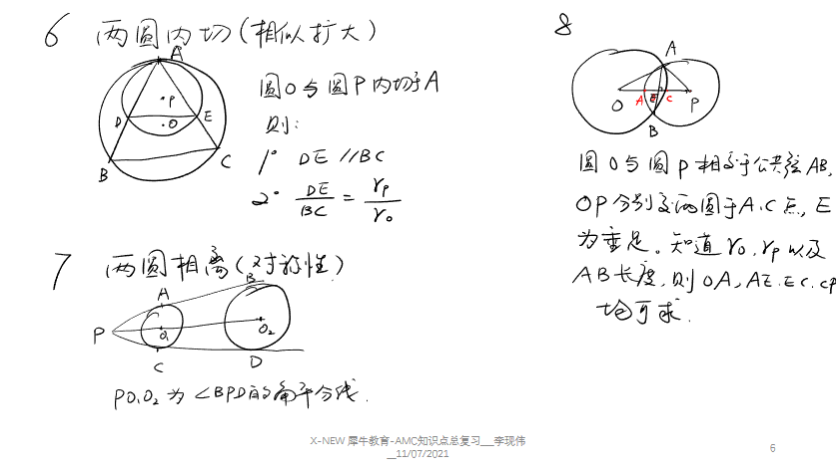 6 两圆内切(相似扩大)
A
P
D
O
E
B
C
圆O与圆P内切于A
则:
1° DE//BC
2° DE/BC = rP/rO
7 两圆相离(对称性)
A
B
P
O1
O2
C
D
PO1O2为∠BPD的角平分线.
8
A
O
A
E
C
P
B
圆O与圆P相交于公共弦AB,
OP分别交两圆于A.C点, E
为垂足。知道rO, rP以及
AB长度,则OA, AE. EC. CP
均可求.
X-NEW 犀牛教育-AMC知识点总复习___李现伟
__11/07/2021
6